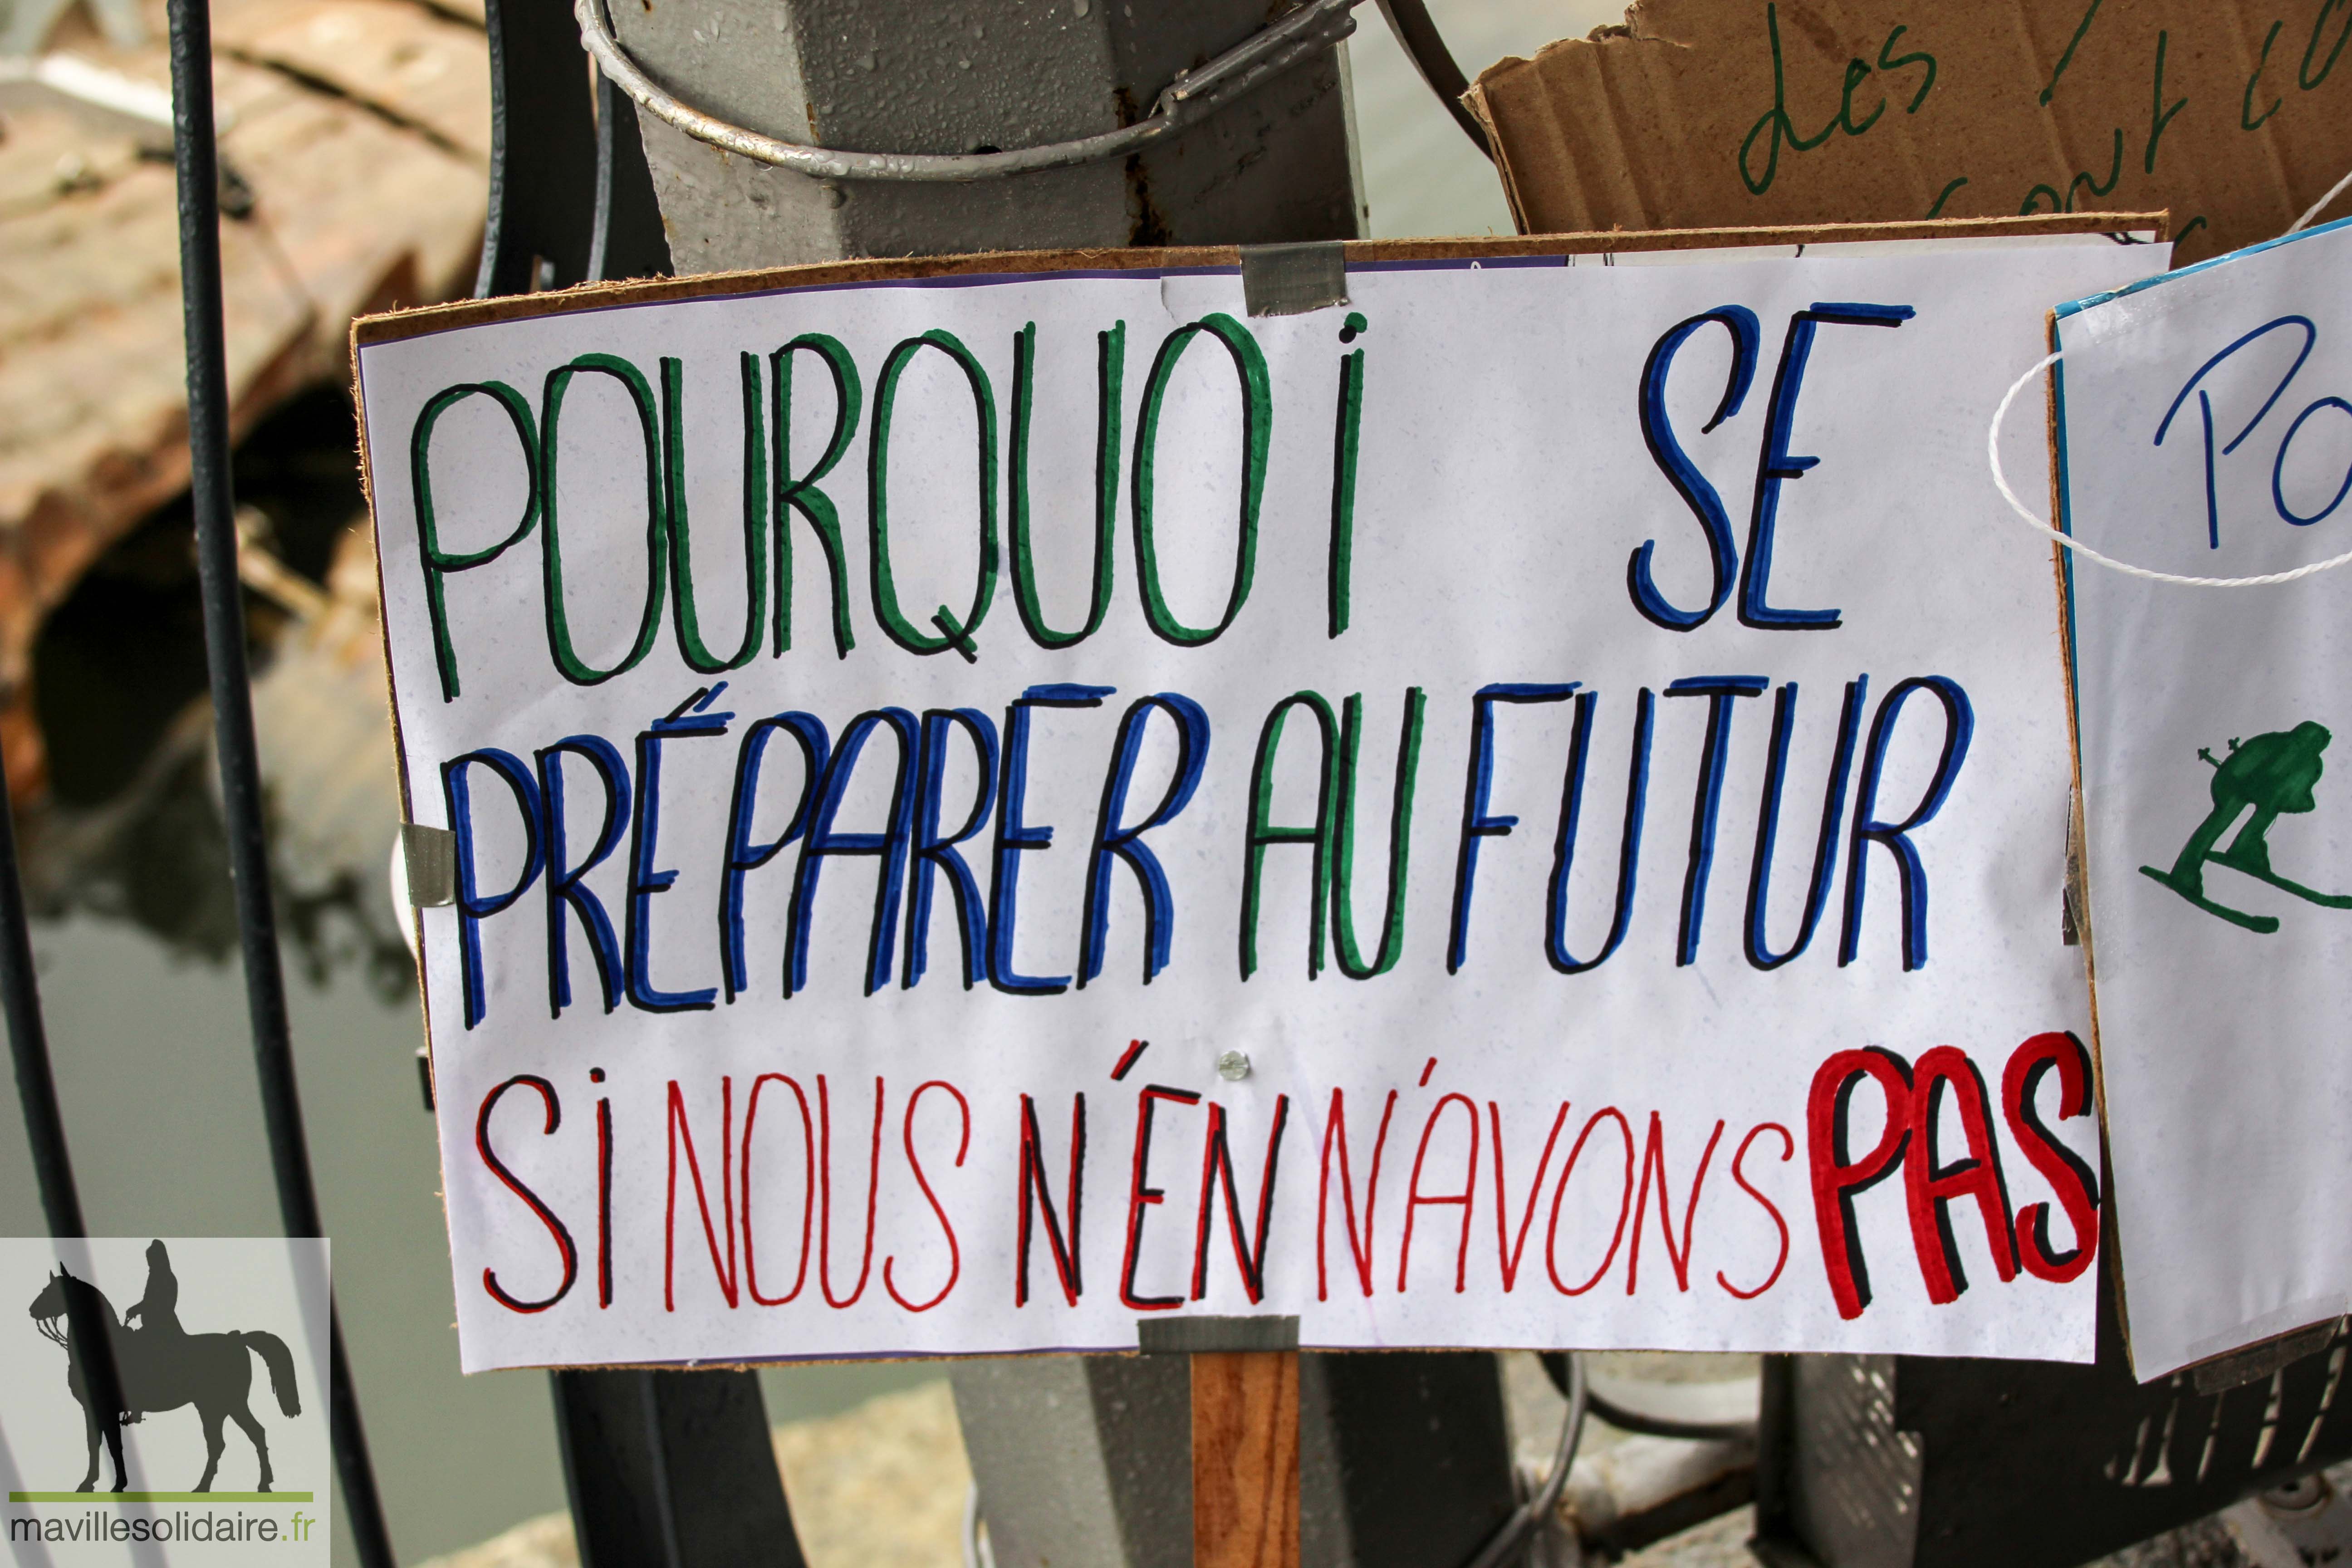 Les
sont
POURQUOi SE
PRÉPARER AU FUTUR
Si NOUS N'EN N'AVONS PAS
mavillesolidaire.fr